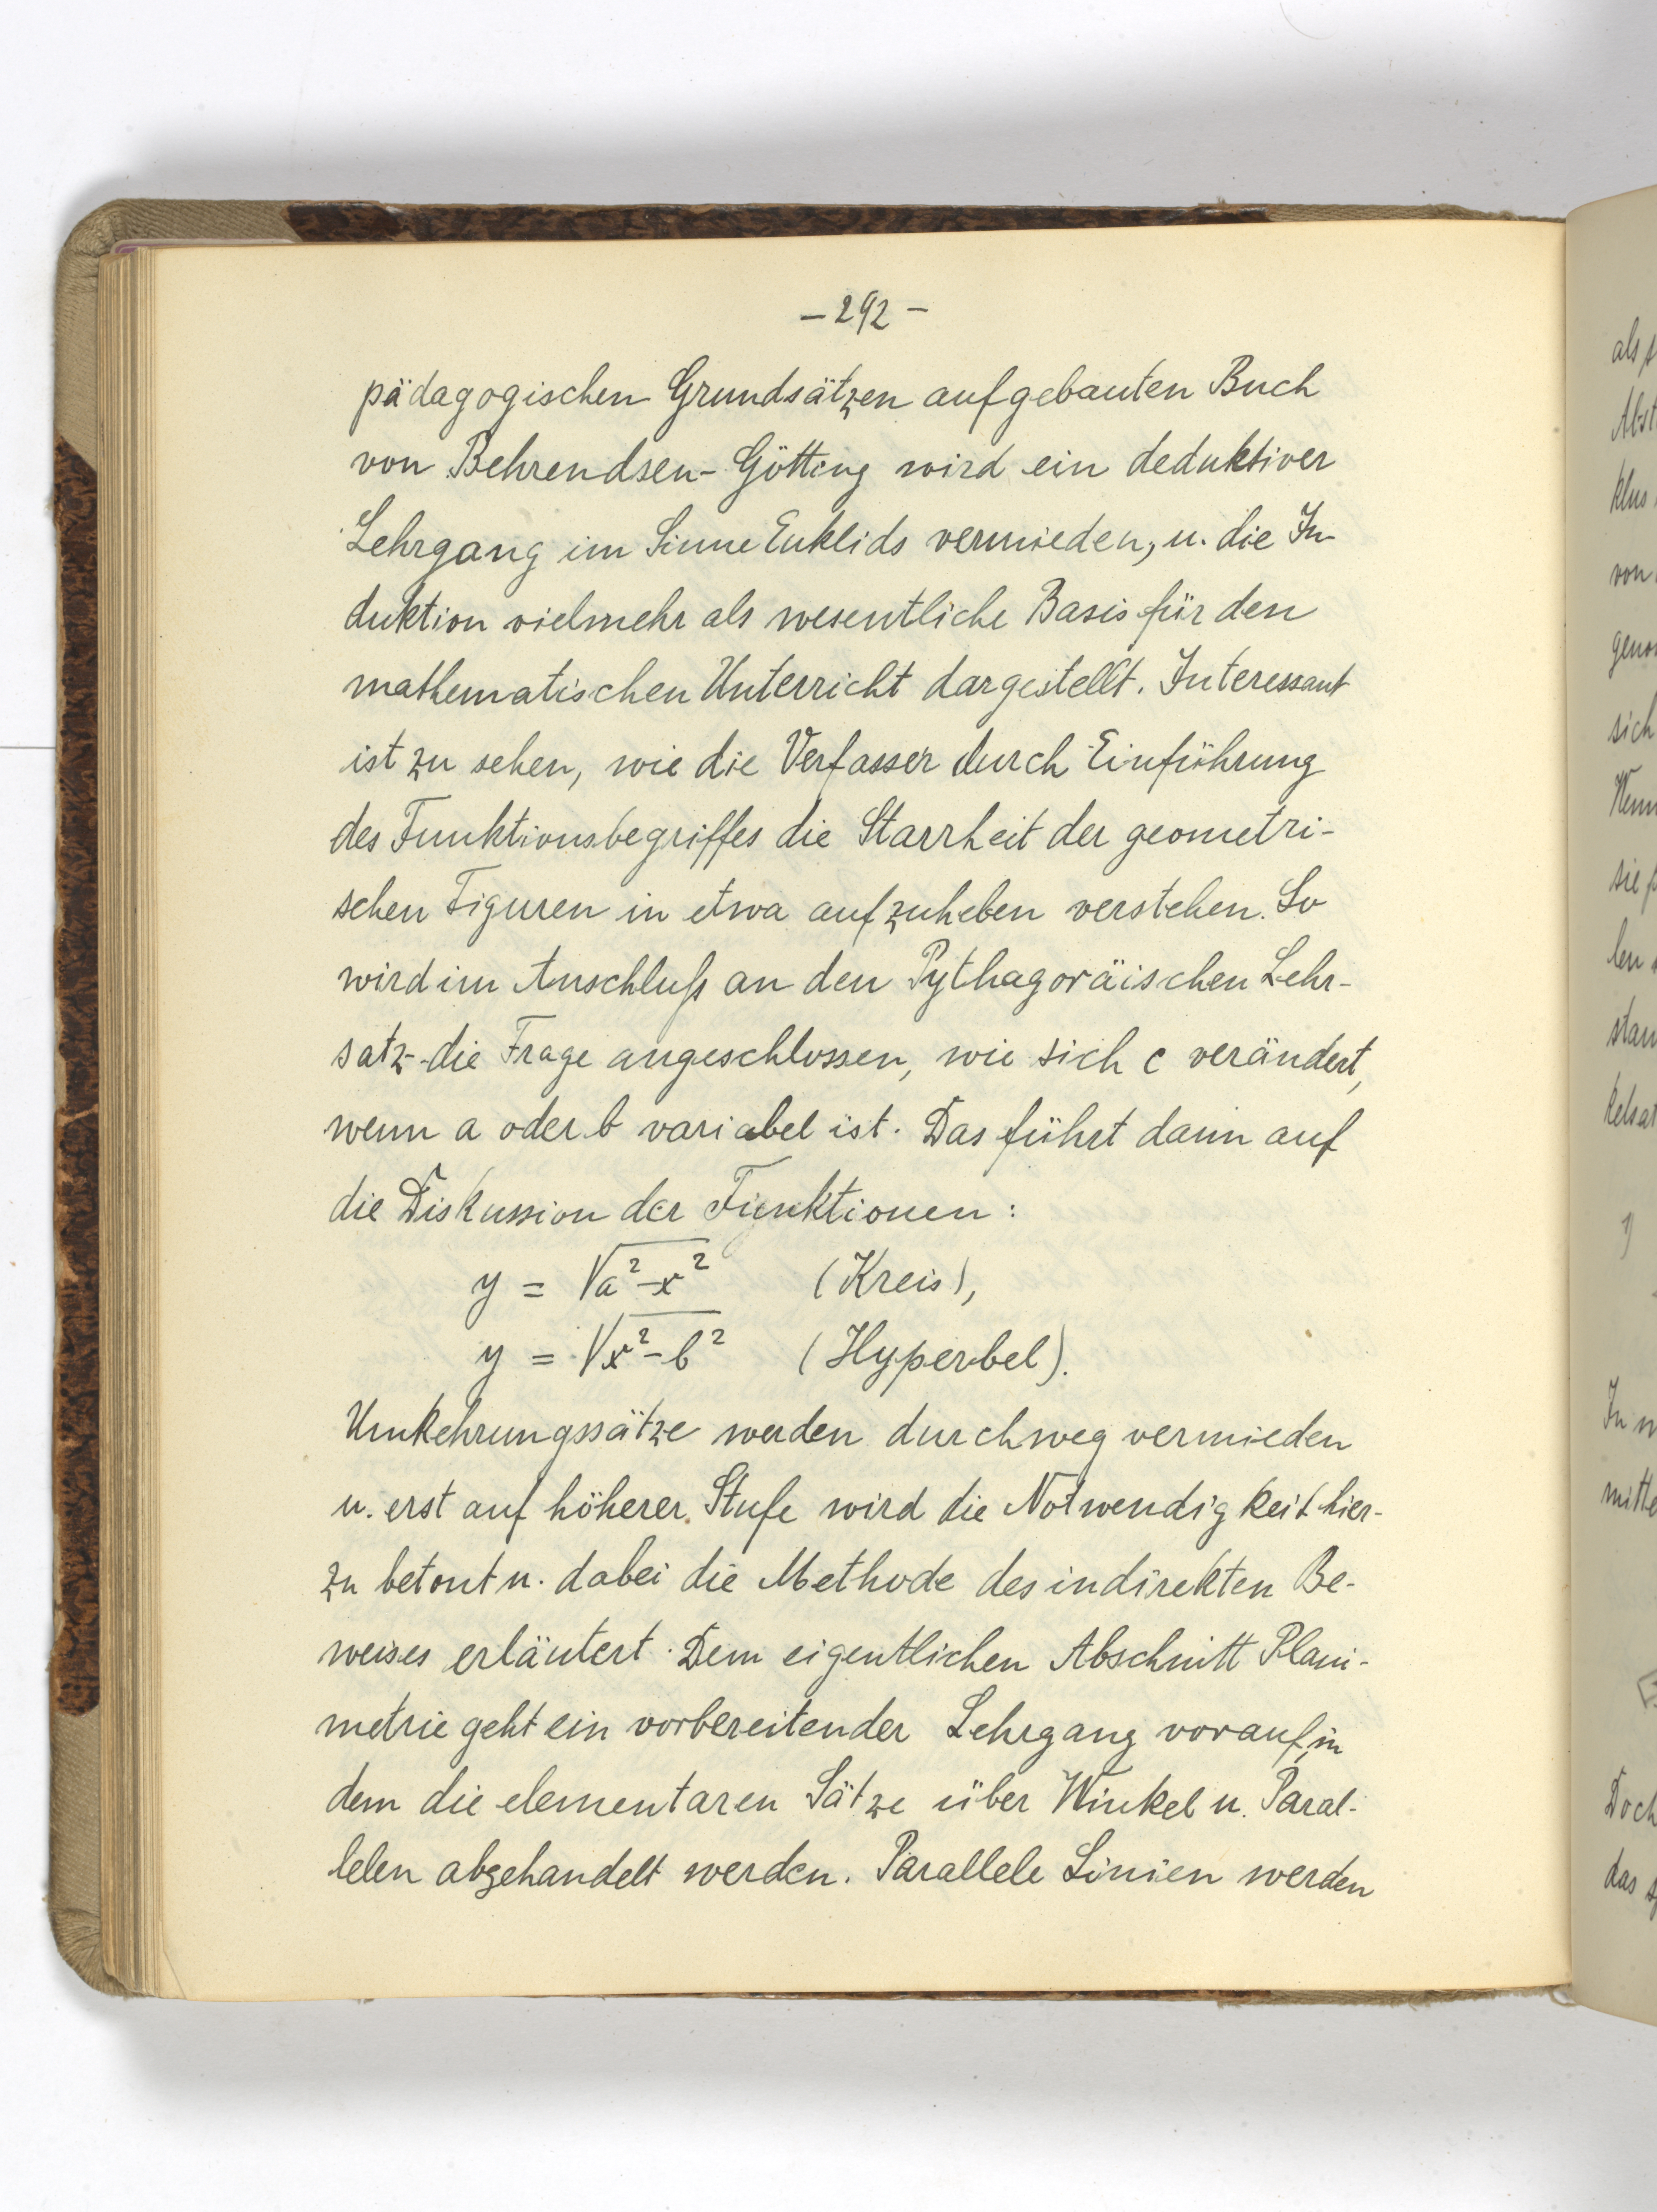 – 292 –
pädagogischen Grundsätzen aufgebauten Buch
von Behrendsen-Götting wird ein deduktiver
Lehrgang im Sinne Euklids vermieden, u. die In-
duktion vielmehr als wesentliche Basis für den
mathematischen Unterricht dargestellt. Interessant
ist zu sehen, wie die Verfasser durch Einführung
des Funktionsbegriffes die Starrheit der geometri-
schen Figuren in etwa aufzuheben verstehen. So
wird im Anschluß an den Pythagoräischen Lehr-
satz die Frage angeschlossen, wie sich c verändert,
wenn a oder b variabel ist. Das führt dann auf
die Diskussion der Funktionen:
y = √a²-x² (Kreis),
y = √x²-b² (Hyperbel).
Umkehrungssätze werden durchweg vermieden
u. erst auf höherer Stufe wird die Notwendigkeit hier-
zu betont u. dabei die Methode des indirekten Be-
weises erläutert. Dem eigentlichen Abschnitt Plani-
metrie geht ein vorbereitender Lehrgang vorauf, in
dem die elementaren Sätze über Winkel u. Paral-
lelen abgehandelt werden. Parallele Linien werden
als
von
sich
In
mitte
Doch
das